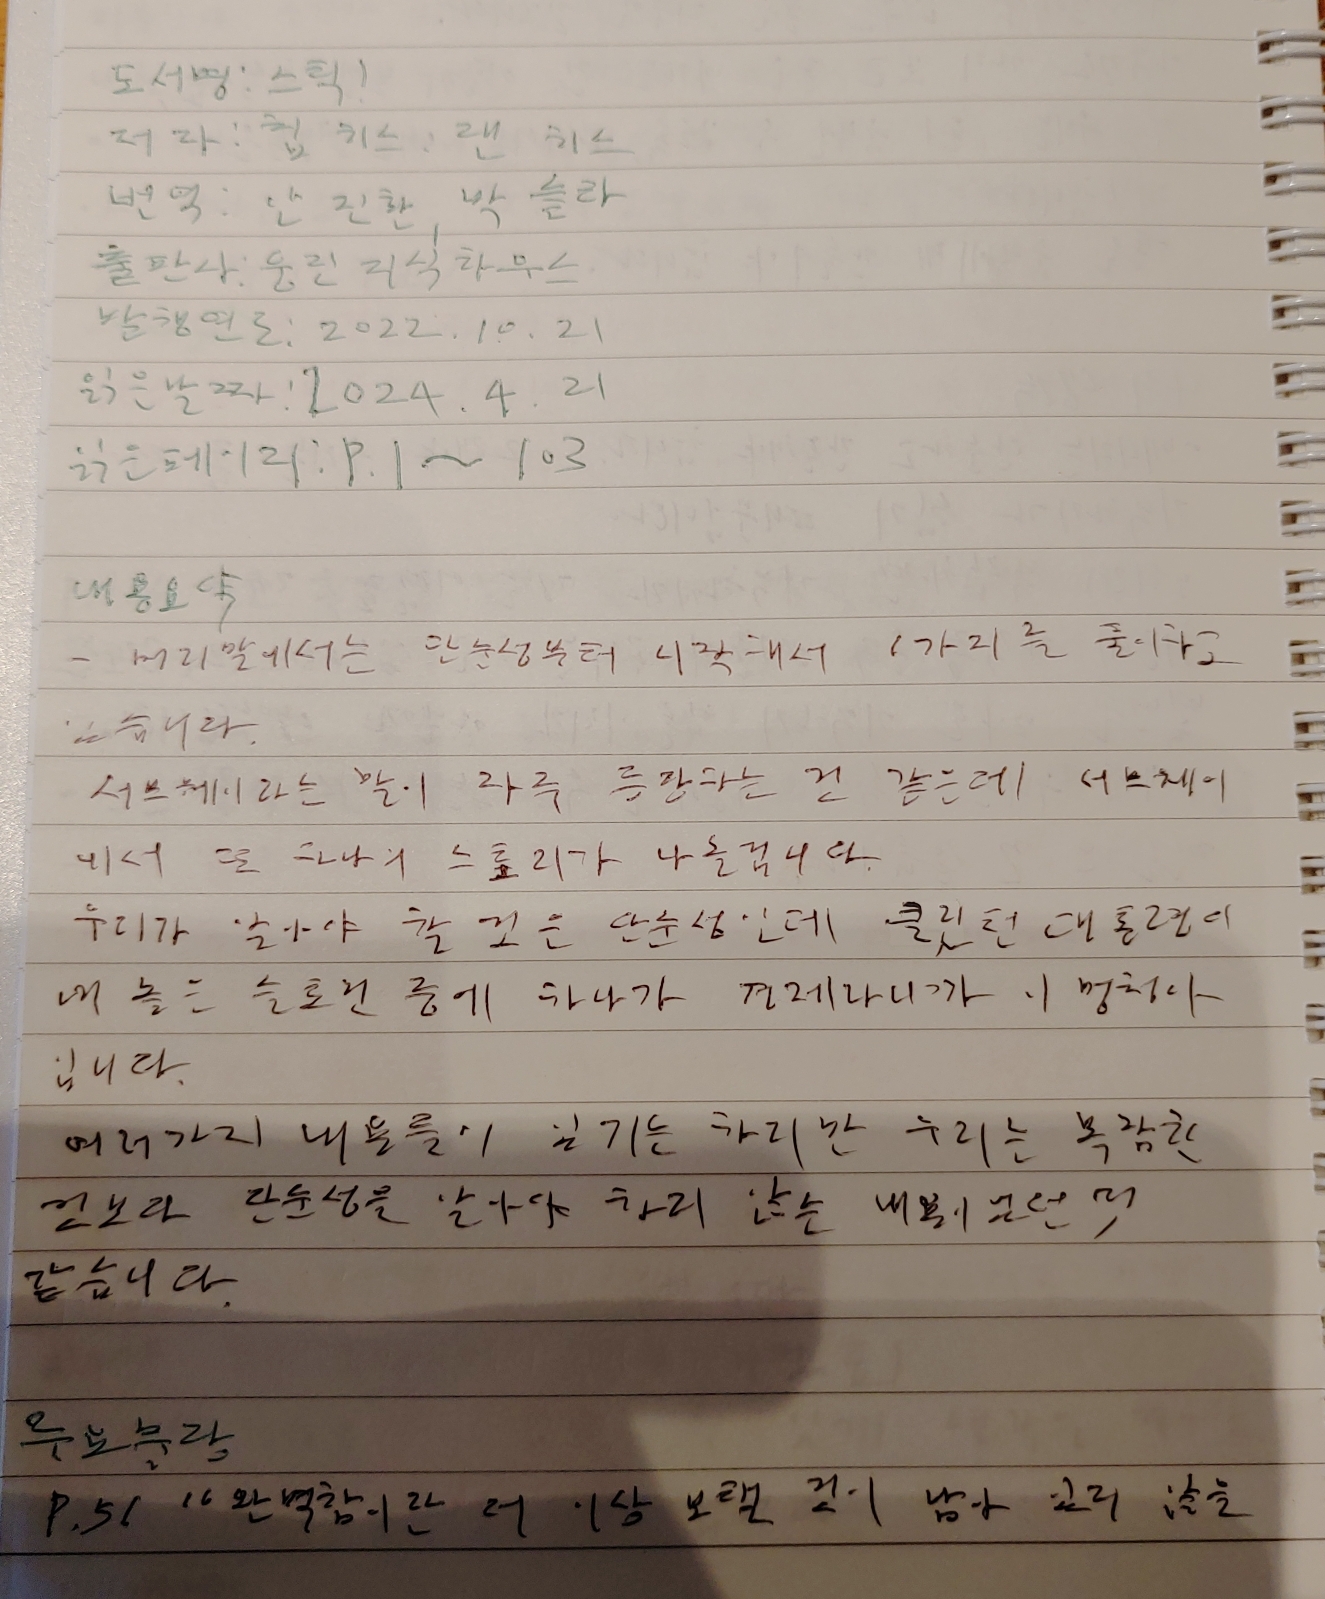 도서명: 스틱!
저자: 칩 히스, 댄 히스
번역: 안 진환, 박 슬라
출판사: 웅진 지식하우스
발행연도: 2022.10.21
읽은날짜: 2024.4.21
읽은페이지: P.1~103
내용요약
- 머리말에서는 단순성부터 시작해서 6가지를 풀이하고
있습니다.
서브웨이라는 말이 자주 등장하는 건 같은데 서브웨이
에서 또 하나의 스토리가 나온겁니다.
우리가 알아야 할 것은 단순성인데 클린턴 대통령이
내 놓은 슬로건 중에 하나가 경제라니까 이 멍청아
입니다.
여러가지 내용들이 있기는 하지만 우리는 복잡한
것보다 단순성을 알아야 하지 않는
같습니다.
주요문장
P.51 "완벽함이란 더 이상 보탤 것이 남아 있지 않을